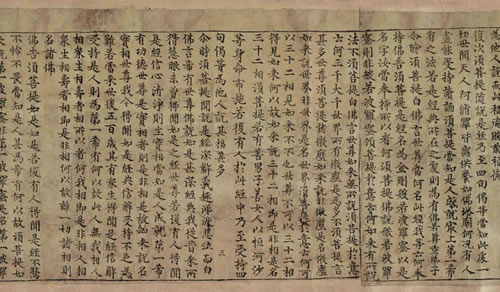 為他人說而此福德勝前福德
復次須菩提隨說是經乃至四句偈等當知此處一
切世間天人阿脩羅皆應供養如佛塔廟何況有人
盡能受持讀誦須菩提當知是人成就最上第一希
有之法若是經典所在之處則為有佛若尊重弟子
尒時須菩提白佛言世尊當何名此經我等云何奉
持佛告須菩提是經名為金剛般若波羅蜜以是
名字汝當奉持所以者何須菩提佛說般若波羅
蜜則非般若波羅蜜須菩提於意云何如來有所說
法不須菩提白佛言世尊如來無所說須菩提於意
云何三千大千世界所有微塵是為多不須菩提言
甚多世尊須菩提諸微塵如來說非微塵是名微塵
如來說世界非世界是名世界須菩提於意云何可
以三十二相見如來不不也世尊不可以三十二相
得見如來何以故如來說三十二相即是非相是名
三十二相須菩提若有善男子善女人以恒河沙
等身命布施若復有人於此經中乃至受持四
句偈等為他人說其福甚多
尒時須菩提聞說是經深解義趣涕淚悲泣而白
佛言希有世尊佛說如是甚深經典我從昔來所
得慧眼未曾得聞如是之經世尊若復有人得聞
是經信心清淨則生實相當知是人成就第一希
有功德世尊是實相者則是非相是故如來說名
實相世尊我今得聞如是經典信解受持不足為
難若當來世後五百歲其有眾生得聞是經信解
受持是人則為第一希有何以故此人無我相人
相眾生相壽者相所以者何我相即是非相人相
眾生相壽者相即是非相何以故離一切諸相則
名諸佛
佛告須菩提如是如是若復有人得聞是經不驚
不怖不畏當知是人甚為希有何以故須菩提如
來說第一波羅蜜非第一波羅蜜是名第一